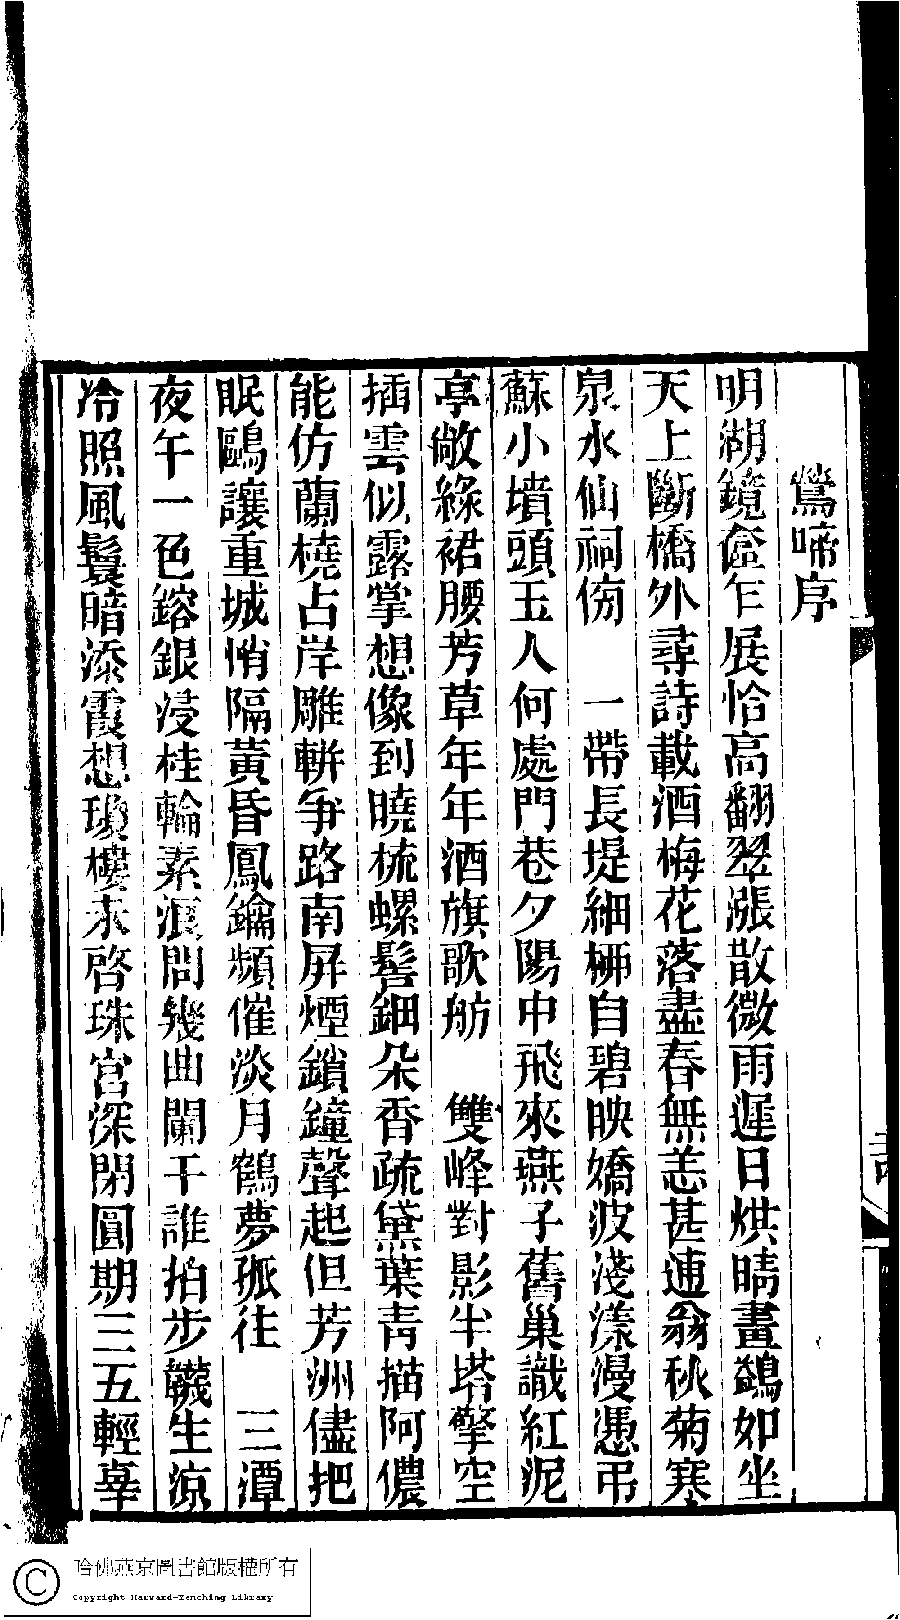 鶯啼序
明湖鏡奩乍展恰高翻翠漲散微雨遲日烘晴畫鷁如坐
天上斷橋外尋詩載酒梅花落盡春無恙甚逋翁秋菊寒
泉水仙祠傍　一帶長堤細栁自碧映嬌波淺漾漫憑弔
蘇小墳頭玉人何處門巷夕陽中飛來燕子舊巢識紅泥
亭敞綠裙腰芳草年年酒旗歌舫　雙峰對影半塔擎空
插雲似露掌想像到曉梳螺髻鈿朵香疏黛葉靑描阿儂
能仿蘭橈占岸雕輧爭路南屏煙鎖鐘聲起但芳洲儘把
眠鷗讓重城悄隔黃昏鳳鑰頻催淡月鶴夢孤往　三潭
夜午一色鎔銀浸桂輪素浪問幾曲闌干誰拍步韈生涼
冷照風鬟暗添霞想瓊樓未啓珠宮深閉圓期三五輕辜
哈佛燕京圖書館版權所有
Copyright Harvard-Yenching Library